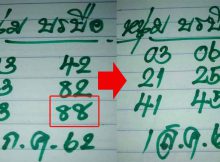 นุ่ม บรบือ
3 42
3 82
3 88
ก.ค. 62
หนุ่ม บรบือ
03 06
21 25
41 45
1 ส.ค. 6